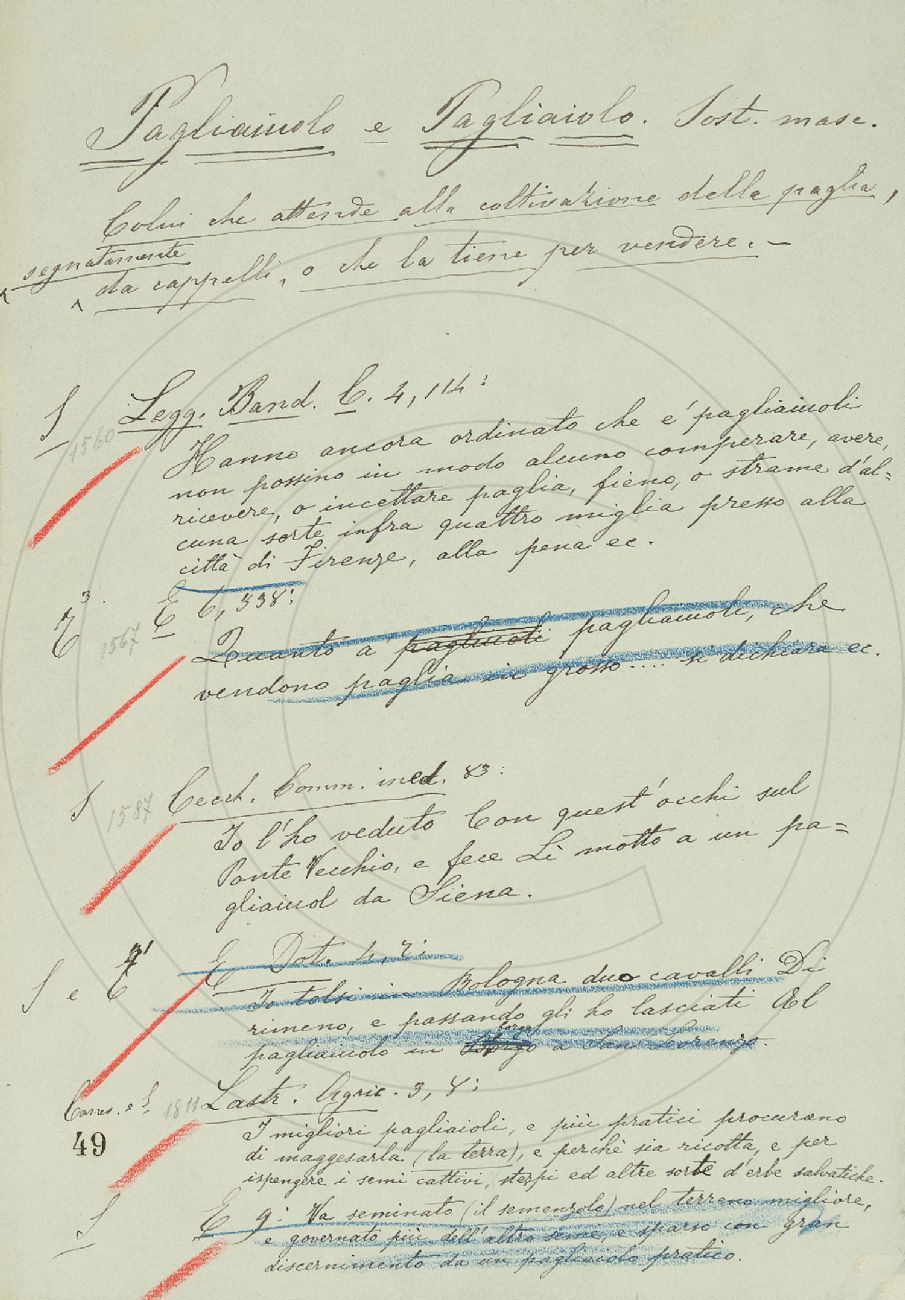 Pagliaiuolo e Pagliaiolo. Sost. masc.
Colui che attende alla coltivazione della paglia,
segnatamente
da cappelli, o che la tiene per vendere. –
S Legg. Band. C. 4, 114:
1560
Hanno ancora ordinato che e' pagliaiuoli
non possino in modo alcuno comperare, avere,
ricevere, o incettare paglia, fieno, o strame d'al=
cuna sorte infra quattro miglia presso alla
città di Firenze, alla pena ec.
3 E 6, 338:
1567
Quanto a' pagliaioli pagliaiuoli, che
vendono paglia in grosso .... si dichiara ec.
S 1587 Cecch. Comm. ined. 83:
Io l'ho veduto Con quest'occhi sul
Ponte Vecchio, e fece Di motto a un pa=
gliaiuol da Siena.
S e E Dot. 4, 2:
Io tolsi in Bologna duo cavalli Di
rimeno, e passando gli ho lasciati Al
pagliaiuolo in a San Lorenzo.
S 1811 Lastr. Agric. 3, 8:
49
I migliori pagliaioli, e più pratici procurano
di maggesarla (la terra), e perchè sia ricotta, e per
ispengere i semi cattivi, sterpi ed altre sorte d'erbe salvatiche.
S E 9: Va seminato (il semenzolo) nel terreno migliore,
e governato più dell'altro seme, e sparso con gran
discernimento da un pagliaiolo pratico.
C